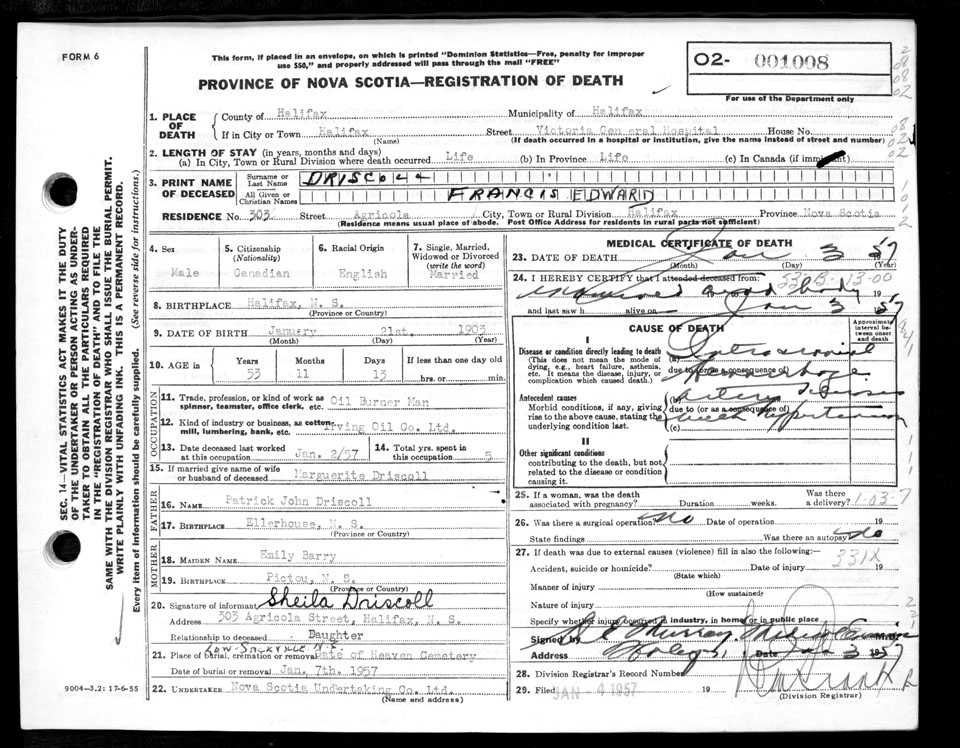 FORM 6
This form, if placed in an envelope, on which is printed "Dominion Statistics—Free, penalty for improper
use $50," and properly addressed will pass through the mail "FREE"
PROVINCE OF NOVA SCOTIA—REGISTRATION OF DEATH
02- 001008
For use of the Department only
SEC. 14—VITAL STATISTICS ACT MAKES IT THE DUTY
OF THE UNDERTAKER OR PERSON ACTING AS UNDER-
TAKER TO OBTAIN ALL THE PARTICULARS REQUIRED
IN THE "REGISTRATION OF DEATH" AND TO FILE THE
SAME WITH THE DIVISION REGISTRAR WHO SHALL ISSUE THE BURIAL PERMIT.
WRITE PLAINLY WITH UNFADING INK. THIS IS A PERMANENT RECORD.
Every item of information should be carefully supplied. (See reverse side for instructions.)
1. PLACE OF DEATH
County of Halifax Municipality of Halifax
If in City or Town Halifax Street Victoria General Hospital House No.
(Name) (If death occurred in a hospital or institution, give the name instead of street and number)
2. LENGTH OF STAY (in years, months and days)
(a) In City, Town or Rural Division where death occurred Life (b) In Province Life (c) In Canada (if immigrant)
3. PRINT NAME OF DECEASED
Surname or Last Name DRISCOLL
All Given or Christian Names FRANCIS EDWARD
RESIDENCE No. 303 Street Agricola City, Town or Rural Division Halifax Province Nova Scotia
(Residence means usual place of abode. Post Office Address for residents in rural parts not sufficient)
4. Sex
Male
5. Citizenship
(Nationality)
Canadian
6. Racial Origin
English
7. Single, Married,
Widowed or Divorced
(write the word)
Married
8. BIRTHPLACE Halifax, N. S.
(Province or Country)
9. DATE OF BIRTH January 21st. 1903
(Month) (Day) (Year)
10. AGE in Years Months Days If less than one day old
53 11 13 hrs. or min.
OCCUPATION
11. Trade, profession, or kind of work as
spinner, teamster, office clerk, etc. Oil Burner Man
12. Kind of industry or business, as cotton
mill, lumbering, bank, etc. Irving Oil Co. Ltd.
13. Date deceased last worked
at this occupation Jan. 2/57
14. Total yrs. spent in
this occupation 5
15. If married give name of wife
or husband of deceased Marguerite Driscoll
FATHER
16. NAME Patrick John Driscoll
17. BIRTHPLACE Ellerhouse, N. S.
(Province or Country)
MOTHER
18. MAIDEN NAME Emily Barry
19. BIRTHPLACE Pictou, N. S.
(Province or Country)
20. Signature of informant Sheila Driscoll
Address 303 Agricola Street, Halifax, N. S.
Relationship to deceased Daughter
21. Place of burial, cremation or removal Gate of Heaven Cemetery
Date of burial or removal Jan. 7th. 1957
22. UNDERTAKER Nova Scotia Undertaking Co. Ltd.
(Name and address)
9004—3,2: 17-6-55
MEDICAL CERTIFICATE OF DEATH
23. DATE OF DEATH Jan 3 57
(Month) (Day) (Year)
24. I HEREBY CERTIFY that I attended deceased from:
body 19
and last saw h alive on Jan 3 1957
CAUSE OF DEATH
Approximate
interval between
onset
and death
I
Disease or condition directly leading to death
(This does not mean the mode of
dying, e.g., heart failure, asthenia,
etc. It means the disease, injury, or
complication which caused death.)
(a) Intracranial
due to (or as a consequence of)
Hemorrhage
Antecedent causes
Morbid conditions, if any, giving
rise to the above cause, stating the
underlying condition last.
due to (or as a consequence of)
with Hypertension
(c)
II
Other significant conditions
contributing to the death, but not
related to the disease or condition
causing it.
25. If a woman, was the death
associated with pregnancy? Duration weeks. Was there a delivery?
1-03-7
26. Was there a surgical operation? No Date of operation 19
State findings Was there an autopsy? No
27. If death was due to external causes (violence) fill in also the following:—
Accident, suicide or homicide? Date of injury 19
331X
(State which)
Manner of injury
(How sustained)
Nature of injury
Specify whether injury occurred in industry, in home or in public place
Signed by Murray
Address Date Jan 3 1957
28. Division Registrar's Record Number
29. Filed JAN 4 1957 19
(Division Registrar)